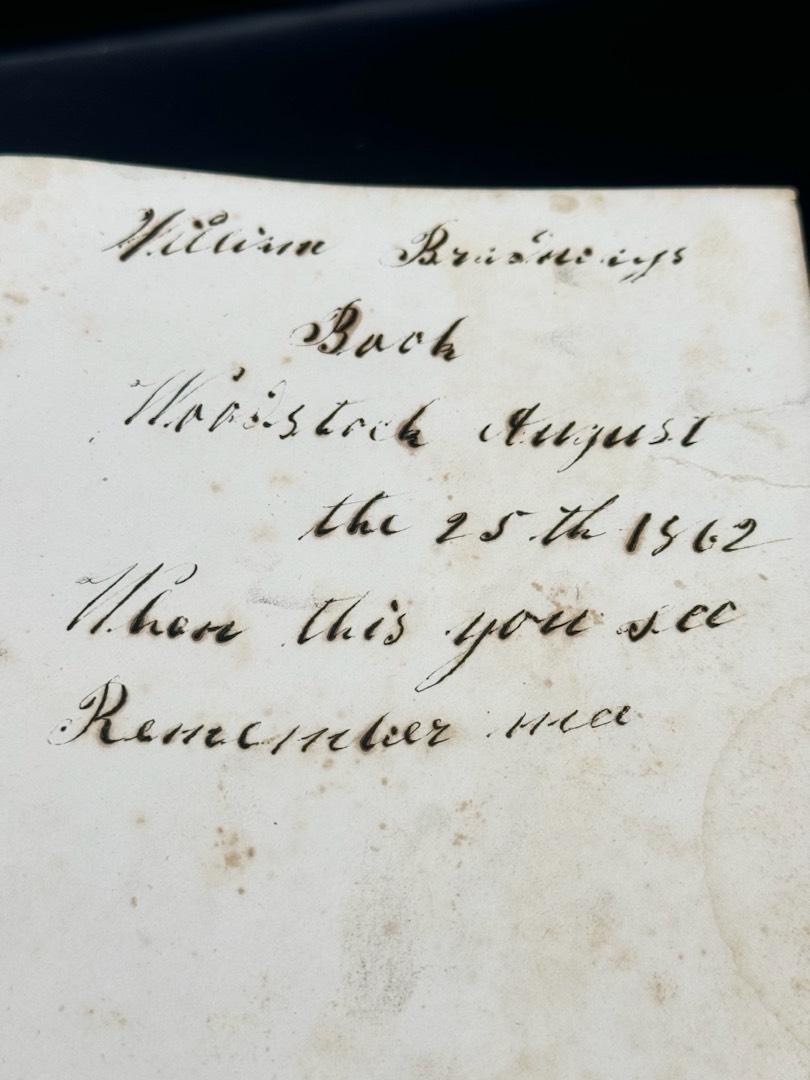 William Bradways
Book
Woodstock August
the 25th 1862
When this you see
Remember me